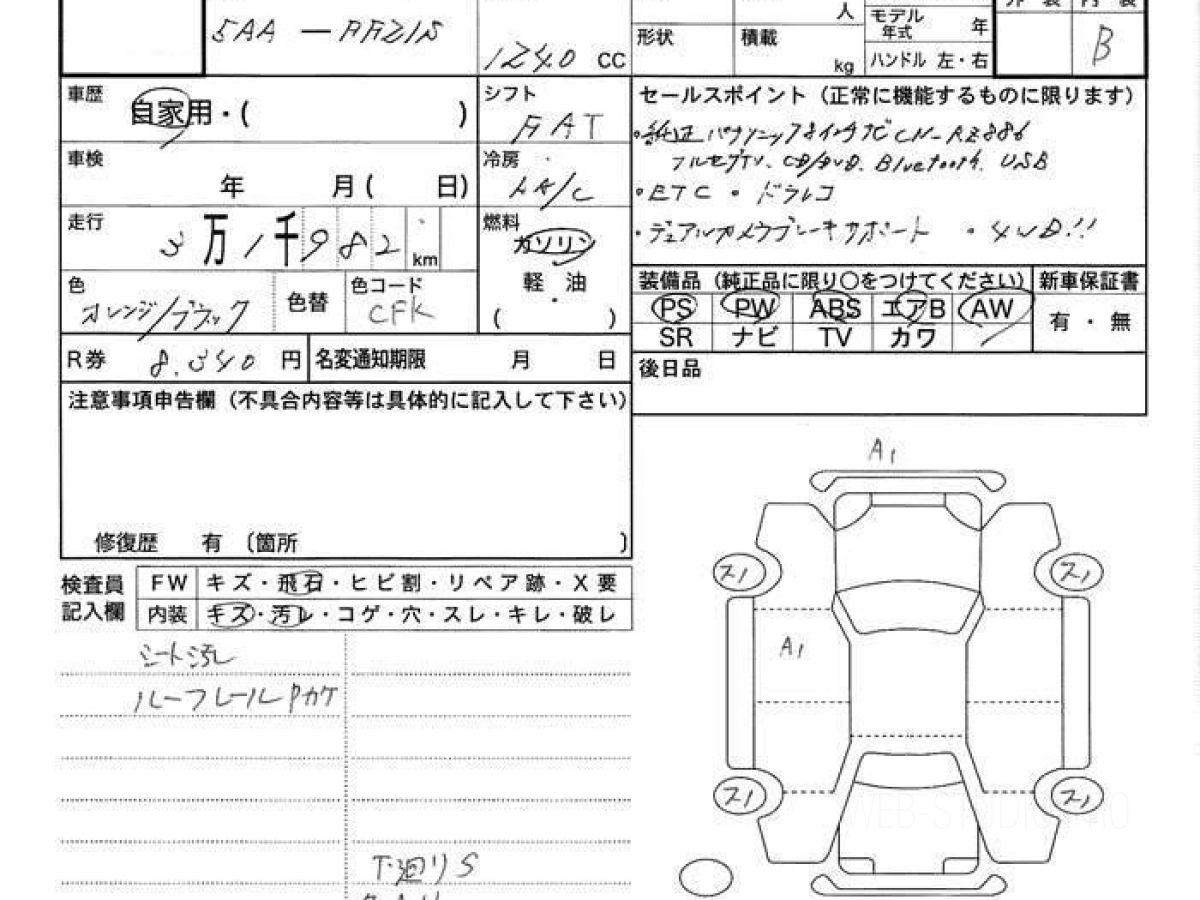 外 装 内 装
5AA - FF21S
1240 cc
人
モデル年式 年
形状
積載 kg
ハンドル 左・右
B
車歴
自家用・( )
シフト
FAT
セールスポイント（正常に機能するものに限ります）
・純正パナソニック8インチナビCN-RZ886
フルセグTV、CD/DVD、Bluetooth、USB
・ETC ・ドラレコ
・デュアルカメラブレーキサポート ・4WD!!
車検
年 月( 日)
冷房
A/C
走行
3万1千982 km
燃料
ガソリン
軽・油
( )
色
オレンジ/ブラック
色替
色コード
CFK
装備品（純正品に限り○をつけてください）
新車保証書
PS PW ABS エアB AW
有・無
SR ナビ TV カワ
R券 8,340 円
名変通知期限 月 日
後日品
注意事項申告欄（不具合内容等は具体的に記入して下さい）
修復歴 有 〔箇所 〕
検査員記入欄
FW キズ・飛石・ヒビ割・リペア跡・X要
内装 キズ・汚レ・コゲ・穴・スレ・キレ・破レ
シート汚レ
ルーフレールPカケ
下廻りS
A1
ス1
ス1
A1
ス1
ス1
WEB-STUDIO.PRO